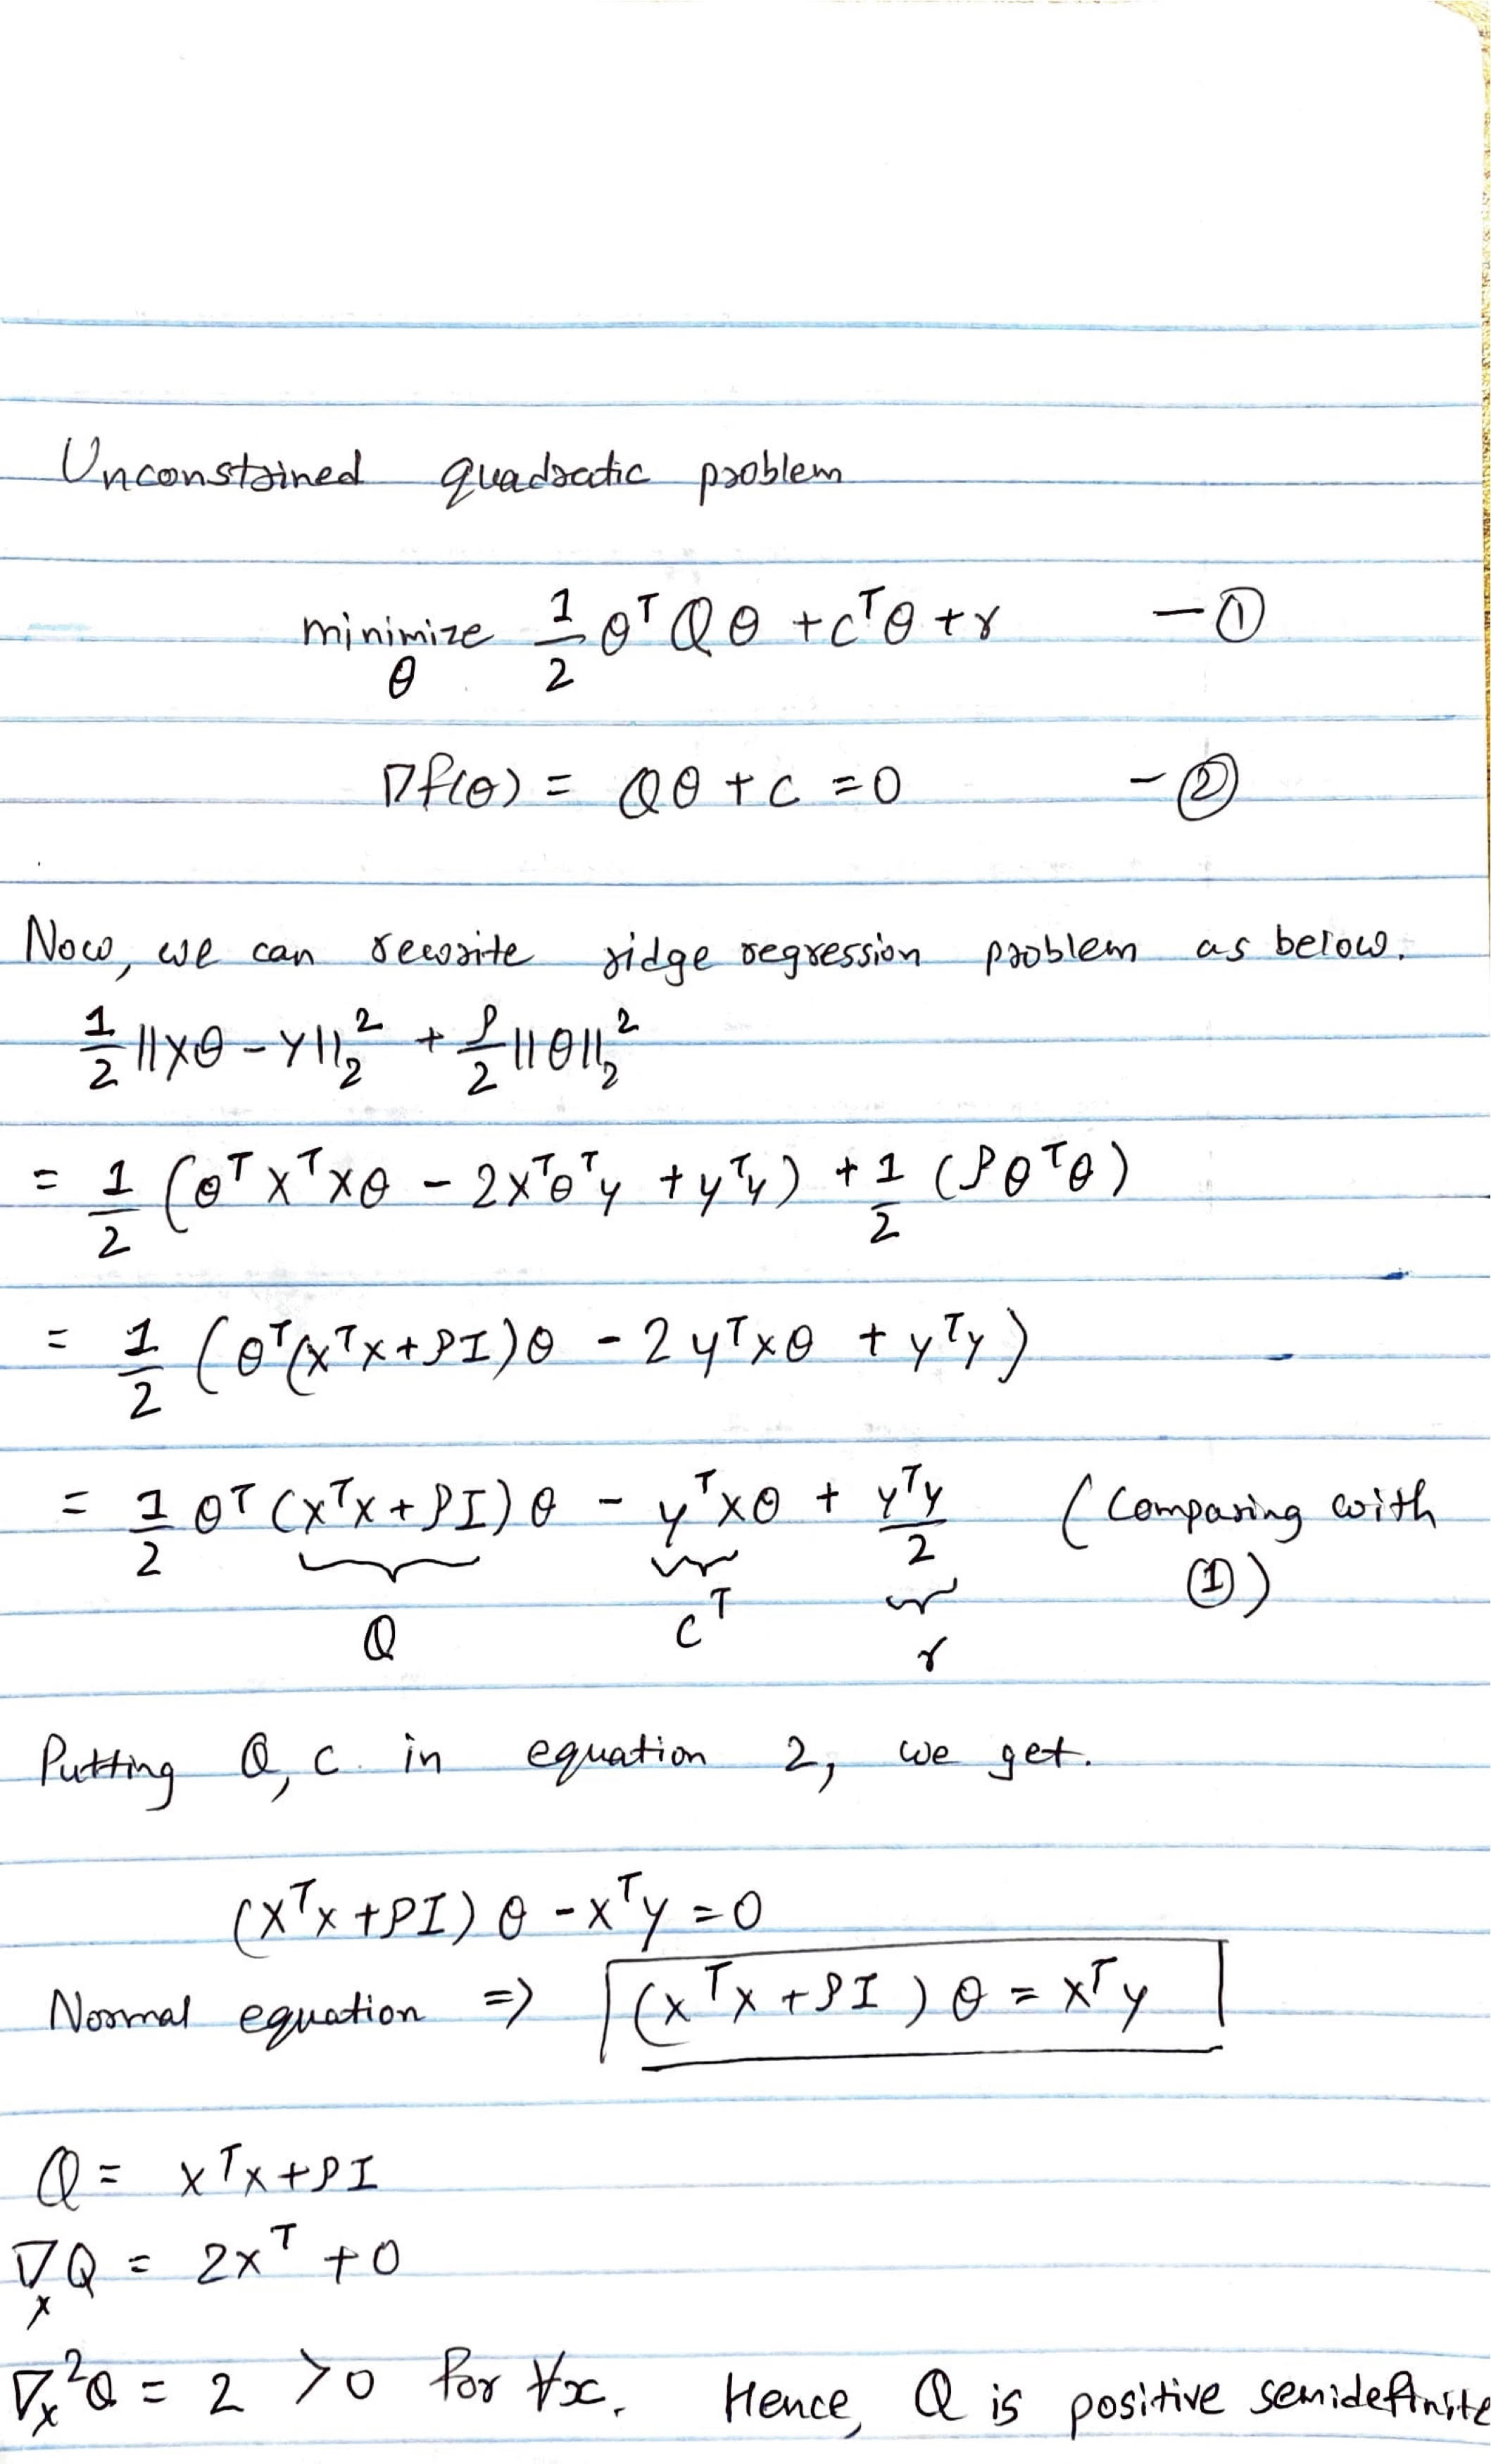 Unconstrained quadratic problem
minimize_θ 1/2 θ^T Q θ + c^T θ + r — ①
∇f(θ) = Qθ + c = 0 — ②
Now, we can rewrite ridge regression problem as below.
1/2 ||Xθ - y||_2^2 + ρ/2 ||θ||_2^2
= 1/2 (θ^T X^T Xθ - 2X^T θ^T y + y^T y) + 1/2 (ρ θ^T θ)
= 1/2 (θ^T (X^T X + ρI) θ - 2 y^T Xθ + y^T y)
= 1/2 θ^T (X^T X + ρI) θ - y^T Xθ + y^T y/2 (Comparing with ①)
Q c^T r
Putting Q, c in equation 2, we get.
(X^T X + ρI) θ - X^T y = 0
Normal equation => (X^T X + ρI) θ = X^T y
Q = X^T X + ρI
∇_x Q = 2X^T + 0
∇_x^2 Q = 2 > 0 for ∀x. Hence, Q is positive semidefinite